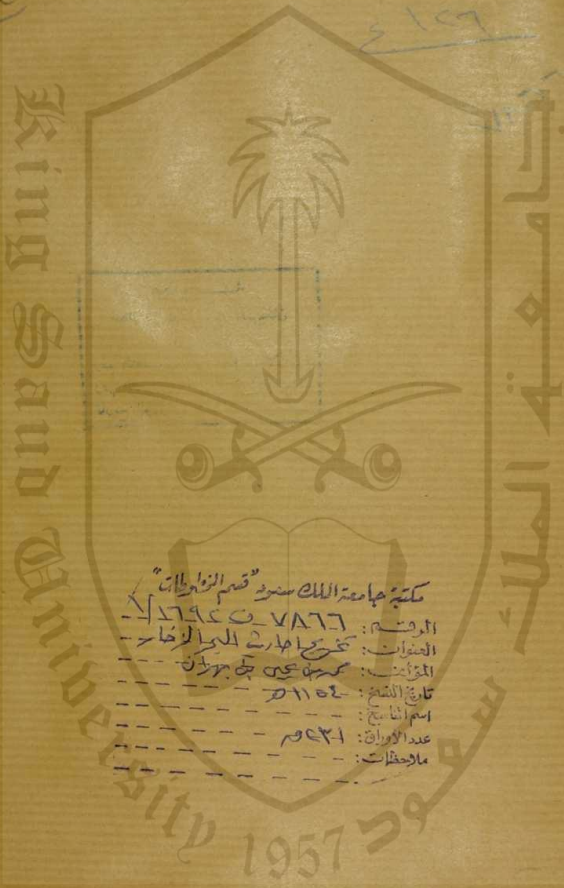 ١٢٦ ع
King Saud University
1957
جامعة الملك سعود
مكتبة جامعة الملك سعود "قسم المخطوطات"
الرقم: ٧٨٦٦
العنوان: تخريج احاديث البحر الزخار
المؤلف: محمد بن يحيى بن بهران
تاريخ النسخ: ١١٥٤هـ
اسم الناسخ:
عدد الأوراق: ٢٣١
ملاحظات: